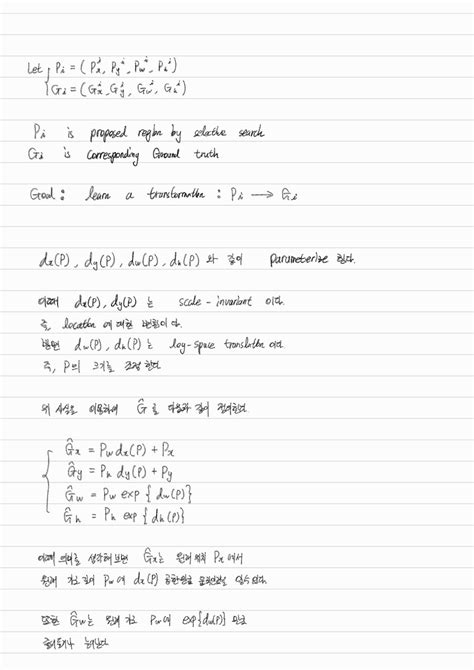 Let { P_i = ( P_x^i, P_y^i, P_w^i, P_h^i )
G_i = ( G_x^i, G_y^i, G_w^i, G_h^i )
P_i is proposed region by selective search
G_i is corresponding Ground truth
Goal : learn a transformation : P_i → Ĝ_i
d_x(P), d_y(P), d_w(P), d_h(P) 와 같이 parameterize 한다.
이때 d_x(P), d_y(P) 는 scale-invariant 이다.
즉, location 에 대한 변환이다.
반면 d_w(P), d_h(P) 는 log-space translation 이다.
즉, P의 크기를 조정한다.
위 사실을 이용하여 Ĝ 를 다음과 같이 정의한다.
{ Ĝ_x = P_w d_x(P) + P_x
Ĝ_y = P_h d_y(P) + P_y
Ĝ_w = P_w exp { d_w(P) }
Ĝ_h = P_h exp { d_h(P) }
이때 의미를 생각해보면 Ĝ_x는 원래 위치 P_x에서
원래 가로 길이 P_w 에 d_x(P) 곱한만큼 알 수 있다.
또한 Ĝ_w는 원래 가로 P_w에 exp{d_w(P)} 만큼
줄어들거나 늘어난다.